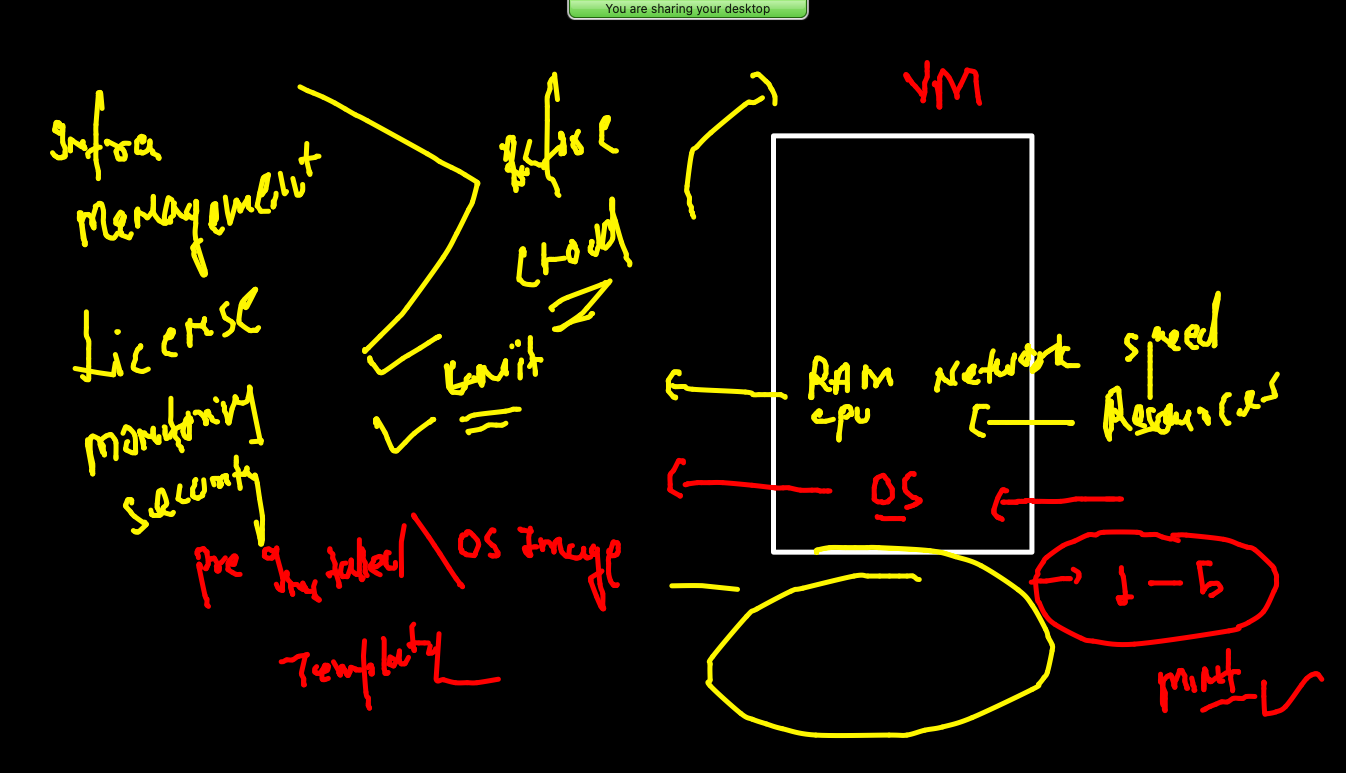 You are sharing your desktop
VM
Infra
Management
License
Monitoring
Security
Azure
Cloud
Limit
RAM
CPU
Network
Speed
Resources
OS
Pre Installed
OS Image
Template
1 - 5
Mint